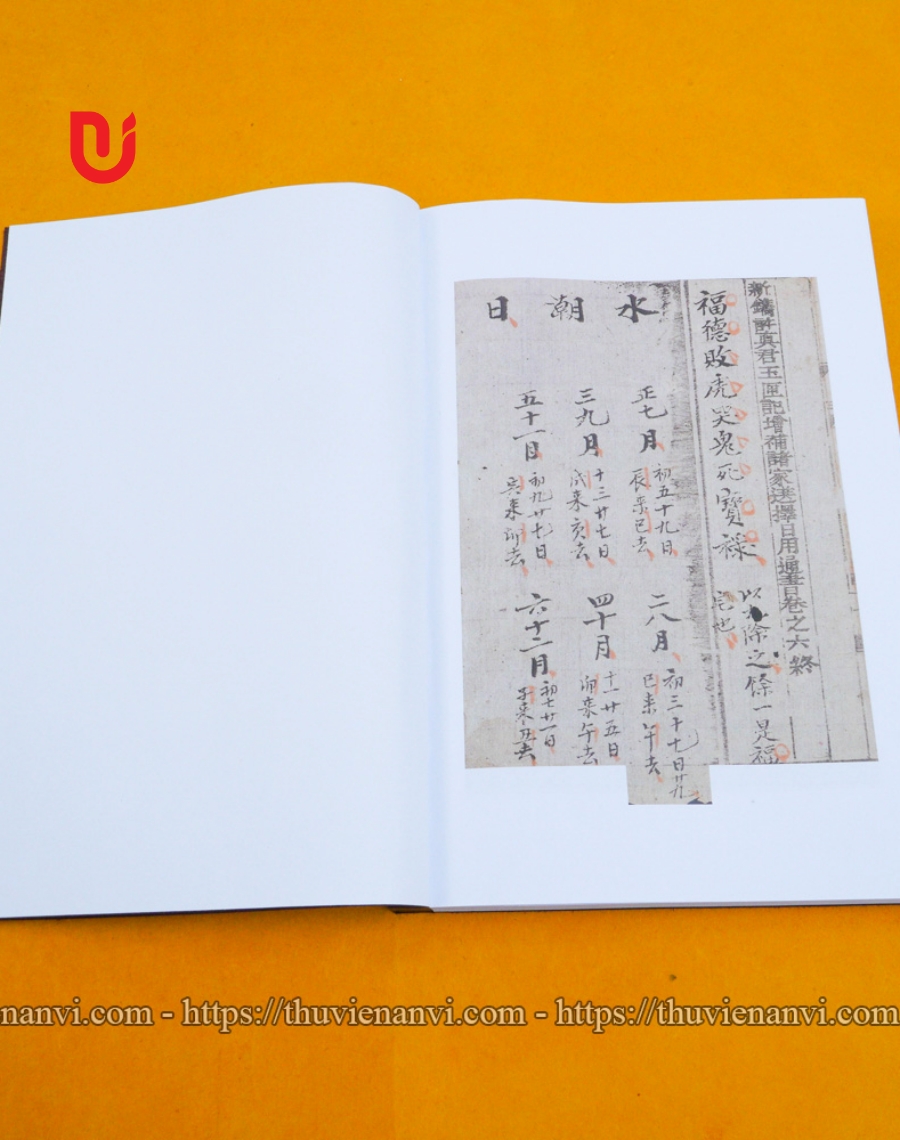 新鐫許真君玉匣記增補諸家選擇日用通書卷之六終
福德敗虎哭鬼死寶祿
以九除之餘一是福
完也
水朝日
正七月
初五十九日
辰來巳去
二八月
初三十七日廿九
巳來午去
三九月
十三廿七日
戌來亥去
四十月
十一廿五日
卯來午去
五十一月
初九廿七日
寅來卯去
六十二月
初七廿一日
子來丑去
nanvi.com - https://thuvienanvi.com - https://thuvienanvi.com